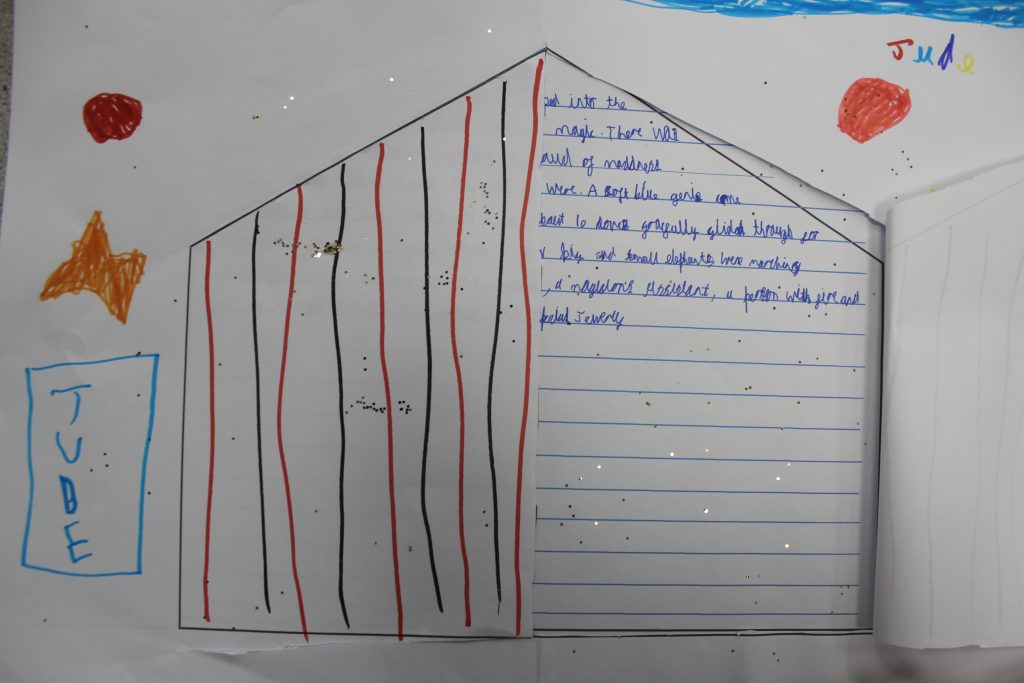 Jude
into the
magic. There was
of maddness
were. A soft blue genie came
gracfully glided through
big and small elephants were marching
, a magicians assistant, a person with fire and
Jewerly
JUDE